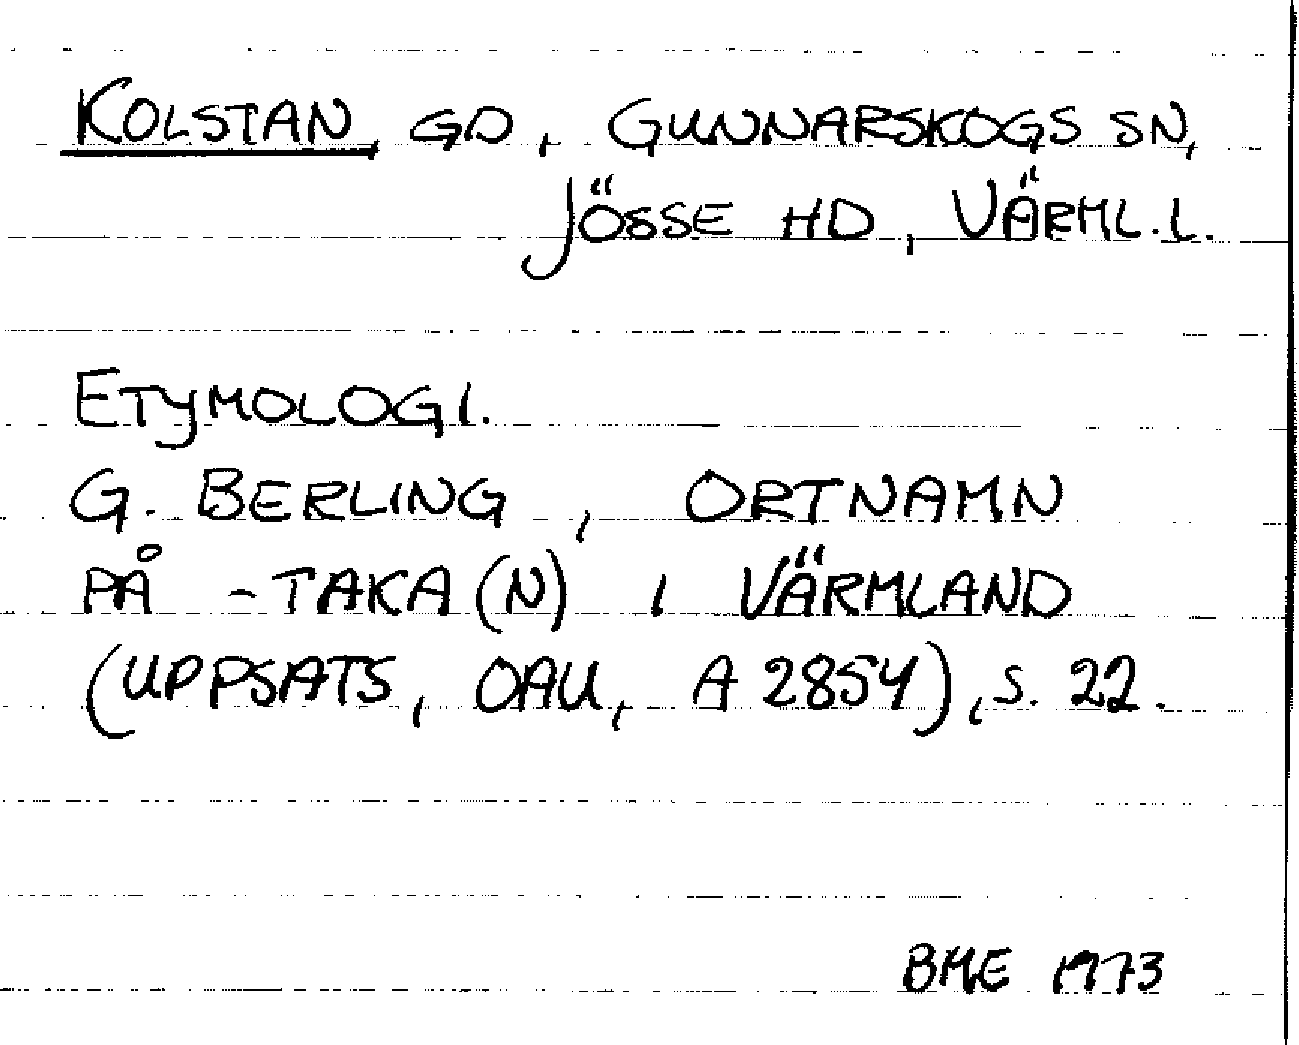 KOLSTAN, GD, GUNNARSKOGS SN,
JÖSSE HD, VÄRML.L.
ETYMOLOGI.
G. BERLING, ORTNAMN
PÅ -TAKA(N) I VÄRMLAND
(UPPSATS, OAU, A 2854), S. 22.
BME 1973